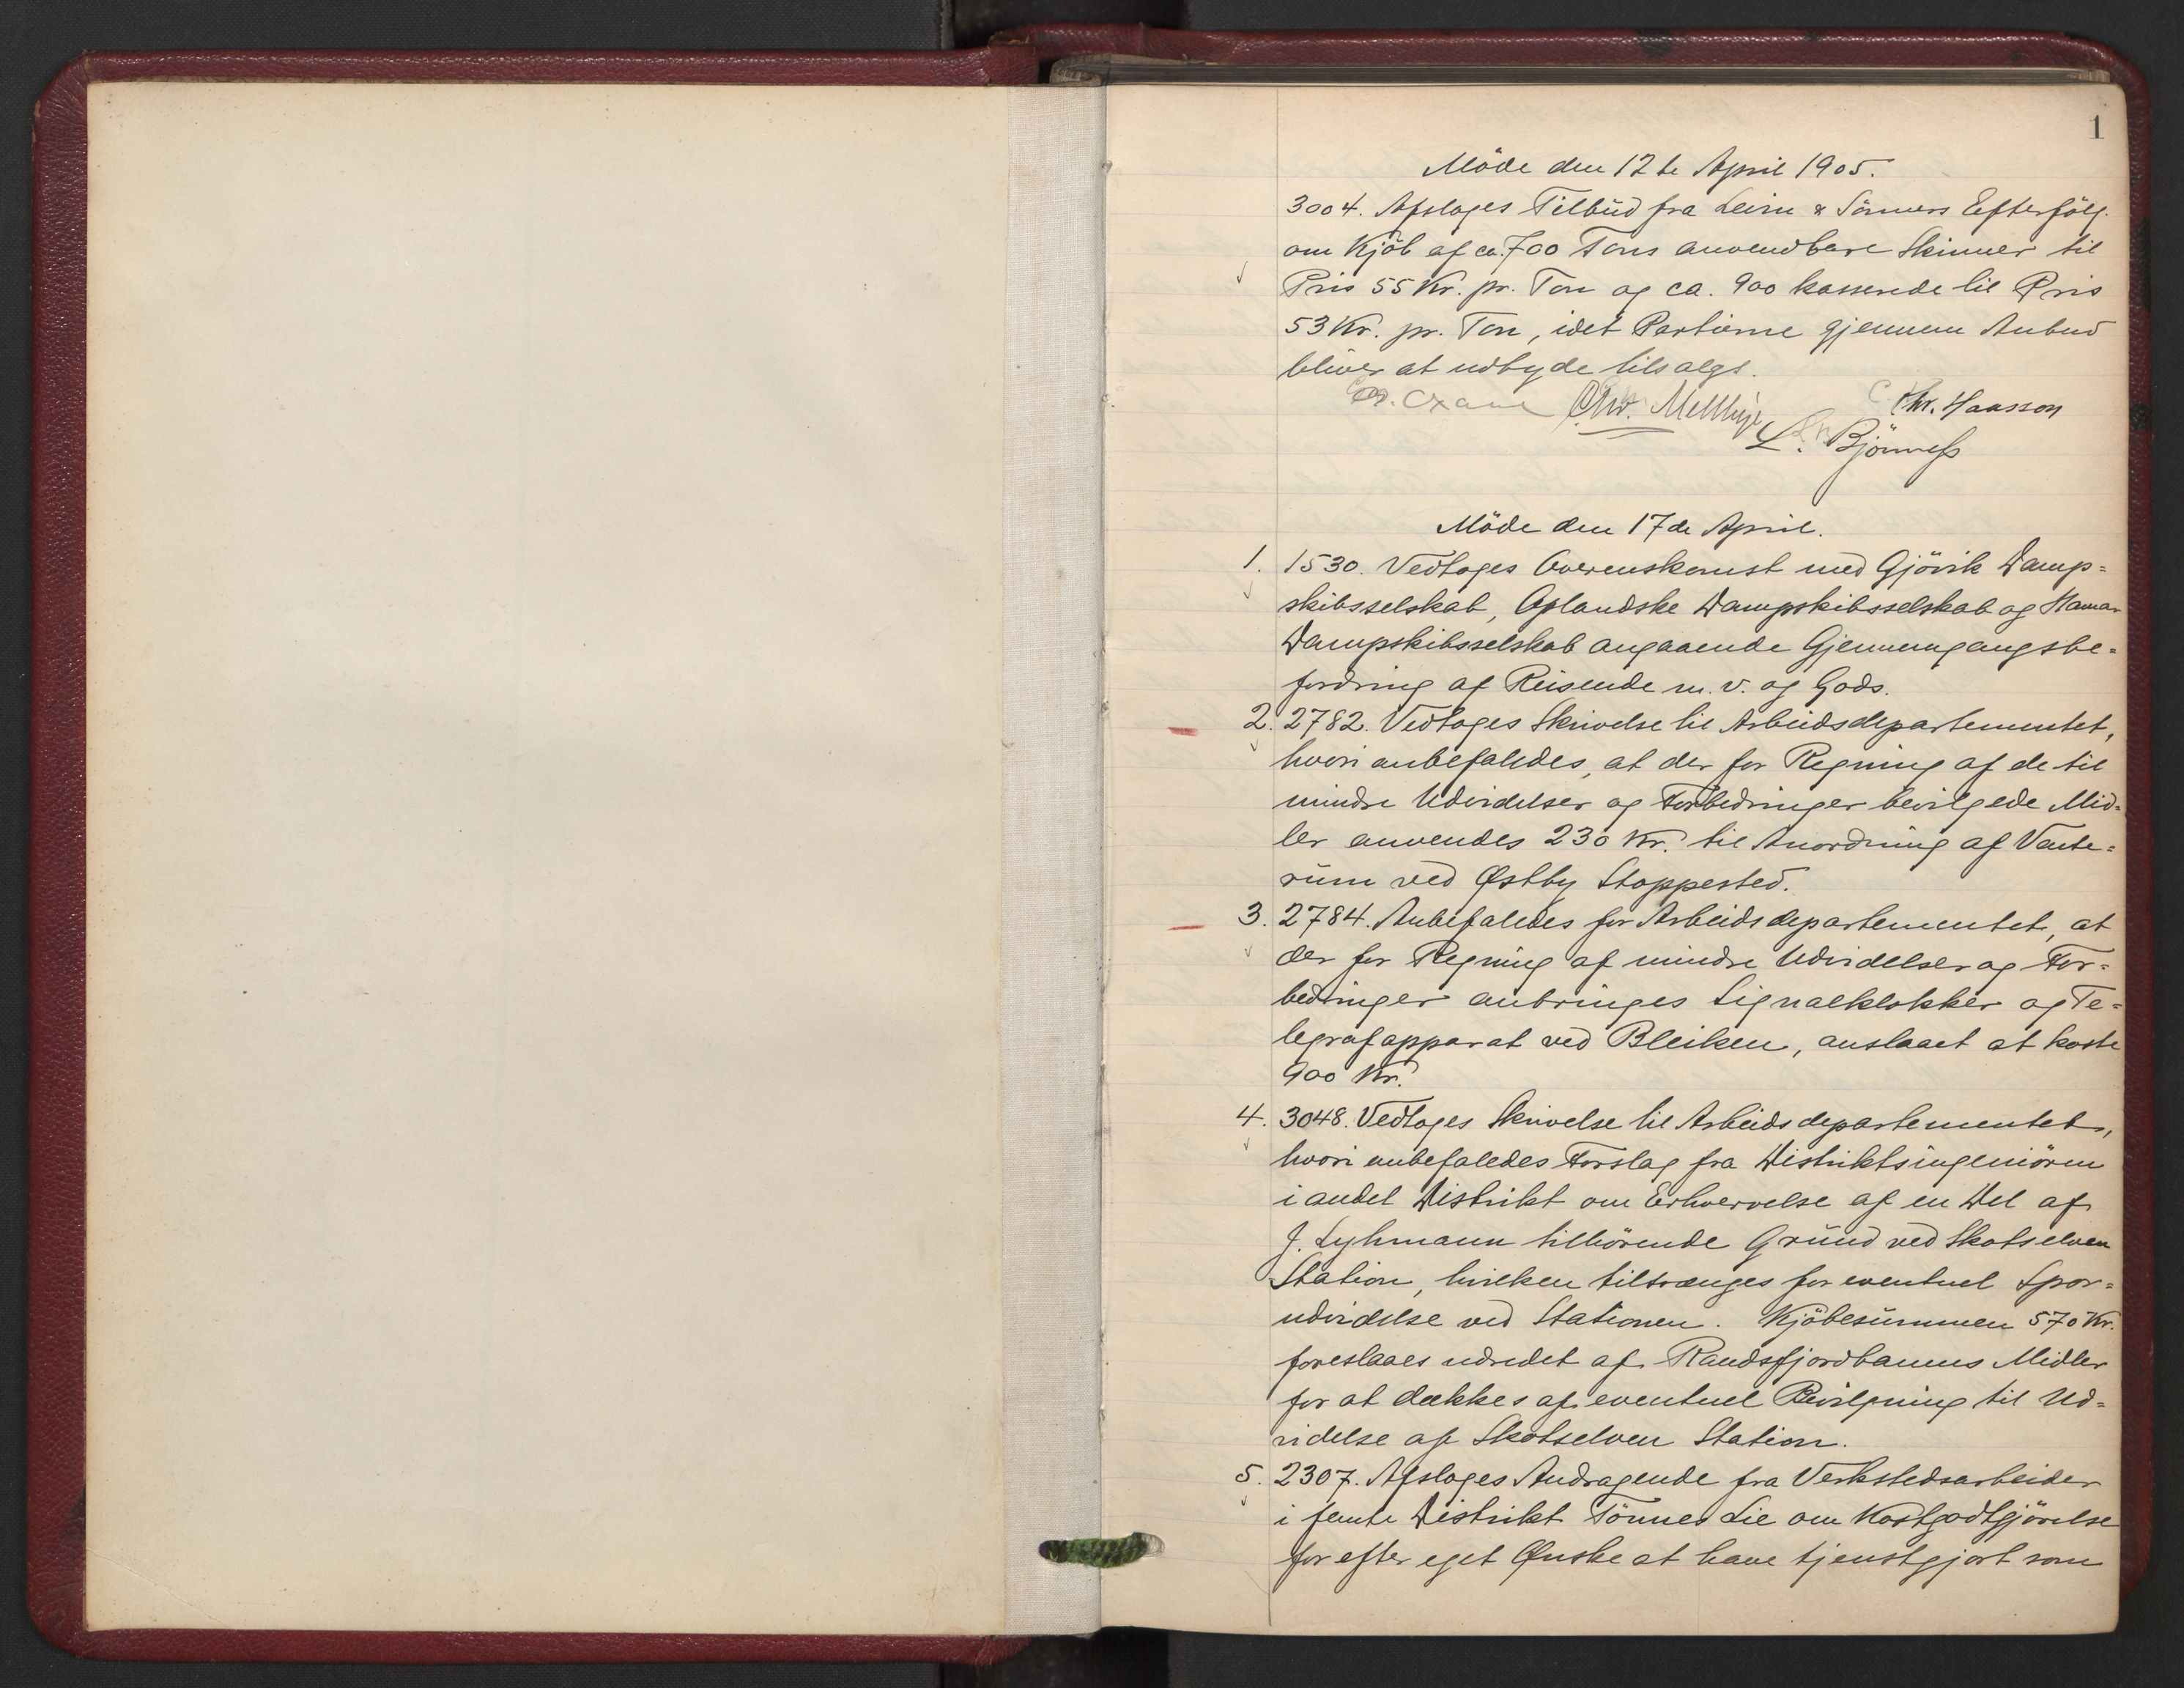 1
Möde den 12te April 1905.
3004. Afslages Tilbud fra Leirn & Sönners Efterfölg.
om Kjöb af ca. 700 Tons anvendbare Skinner til
Pris 55 Kr. pr. Ton og ca. 900 kasserede til Pris
53 Kr. pr. Ton, idet Partierne gjennem Anbud
bliver at udbyde tilsalgs.
Chr. Hansson
L. Björnness
Möde den 17de April.
1. 1530. Vedtoges Overenskomst med Gjövik Damp=
skibsselskab, Oplandske Dampskibsselskab og Hamar
Dampskibsselskab angaaende Gjennemgangsbe=
fordring af Reisende m. v. og Gods.
2. 2782. Vedtoges Skrivelse til Arbeidsdepartementet,
hvori anbefaledes, at der for Regning af de til
mindre Udvidelser og Forbedringer bevilgede Mid=
ler anvendes 230 Kr. til Anordning af Vente=
rum ved Østby Stoppested.
3. 2784. Anbefaledes for Arbeidsdepartementet, at
der for Regning af mindre Udvidelser og For=
bedringer anbringes Signalklokker og Te=
legrafapparat ved Bleiken, anslaaet at koste
900 Kr.
4. 3048. Vedtoges Skrivelse til Arbeidsdepartementet,
hvori anbefaledes Forslag fra Distriktsingeniören
i andet Distrikt om Erhvervelse af en Del af
J. Lyhmann tilhörende Grund ved Skotselven
Station, hvilken tiltrænges for eventuel Spor=
udvidelse ved Stationen. Kjöbesummen 570 Kr.
foreslaaes udredet af Randsfjordbanens Midler
for at dækkes af eventuel Bevilgning til Ud=
videlse af Skotselven Station.
5. 2307. Afsloges Andragende fra Verkstedsarbeider
i femte Distrikt Tönnes Lie om Kostgodtgjörelse
for efter eget Ønske at have tjenstgjort som